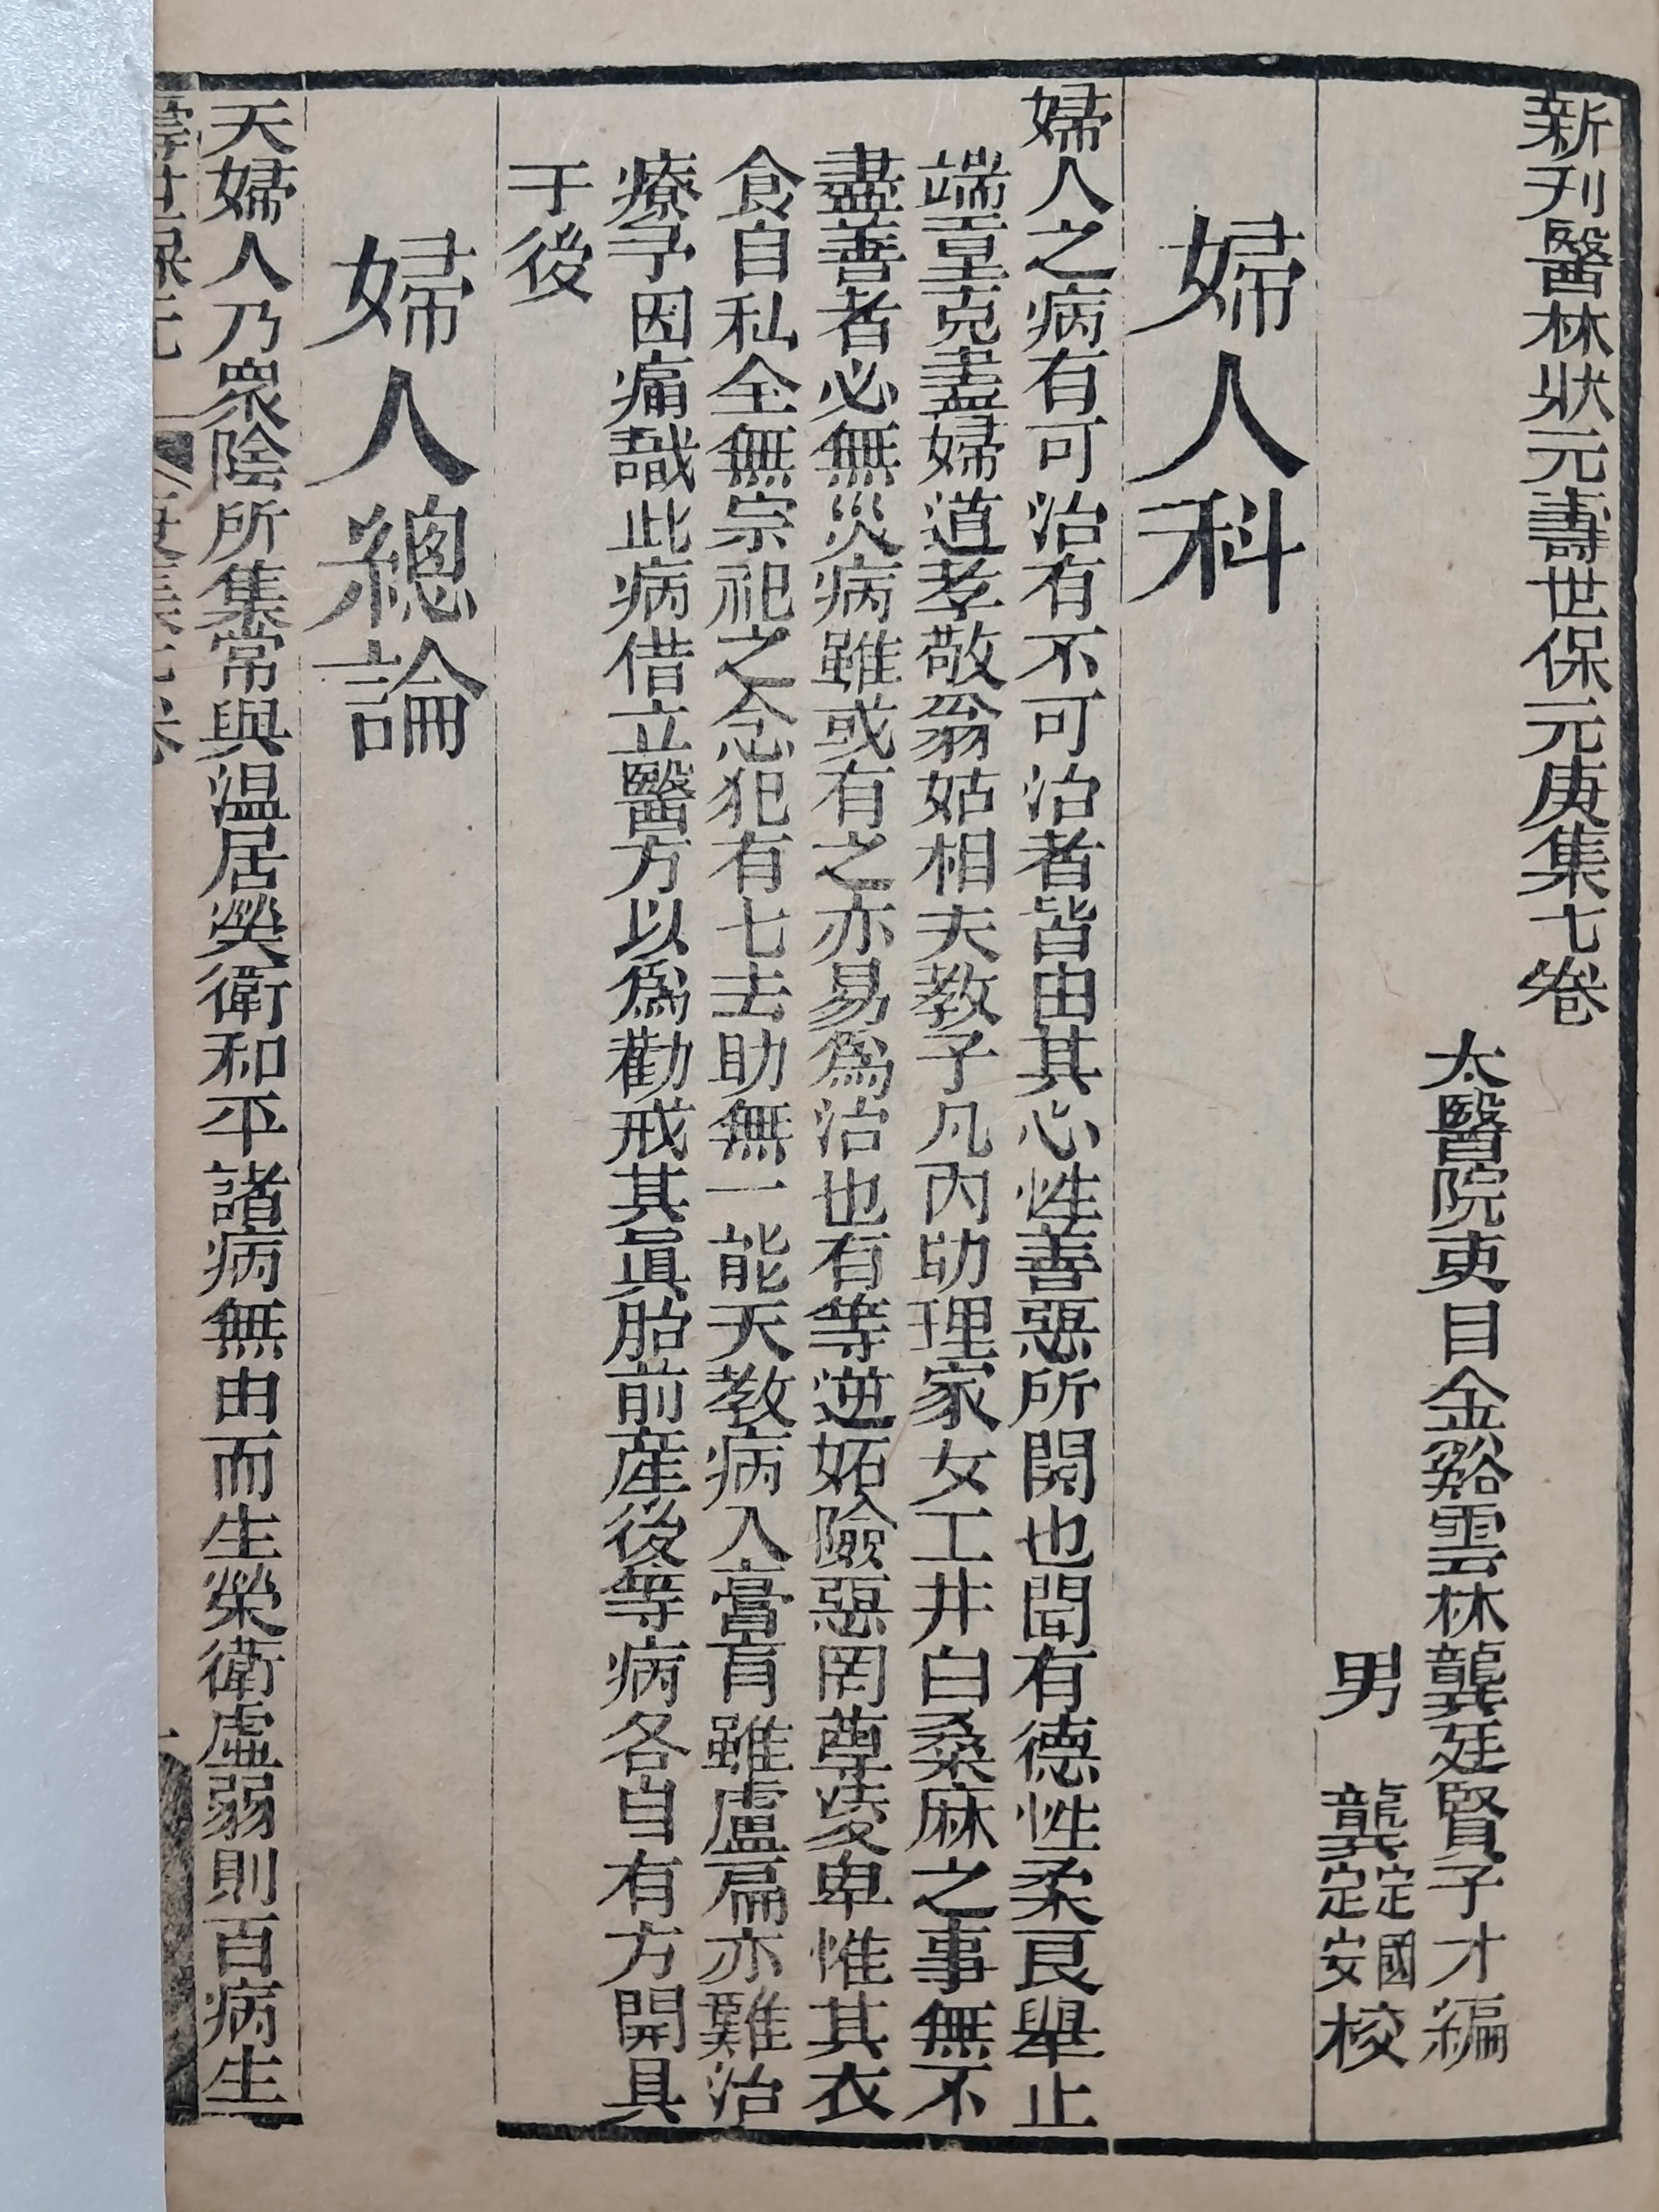 新刊醫林狀元壽世保元庚集七卷
太醫院吏目金谿雲林龔廷賢子才編
男 龔定國 定安校
婦人科
婦人之病有可治有不可治者皆由其心性善惡所関也間有德性柔良舉止
端重克盡婦道孝敬翁姑相夫教子凡內助理家女工井白桑麻之事無不
盡善者必無災病雖或有之亦易為治也有等逆妬險惡罔尊凌卑惟其衣
食自私全無宗祀之念犯有七去助無一能天教病入膏肓雖盧扁亦難治
療予因痛戠此病借立醫方以為勸戒其眞胎前產後等病各自有方開具
于後
婦人總論
天婦人乃眾陰所集常與温居榮衛和平諸病無由而生榮衛虛弱則百病生
壽世保元 庚集七卷 一